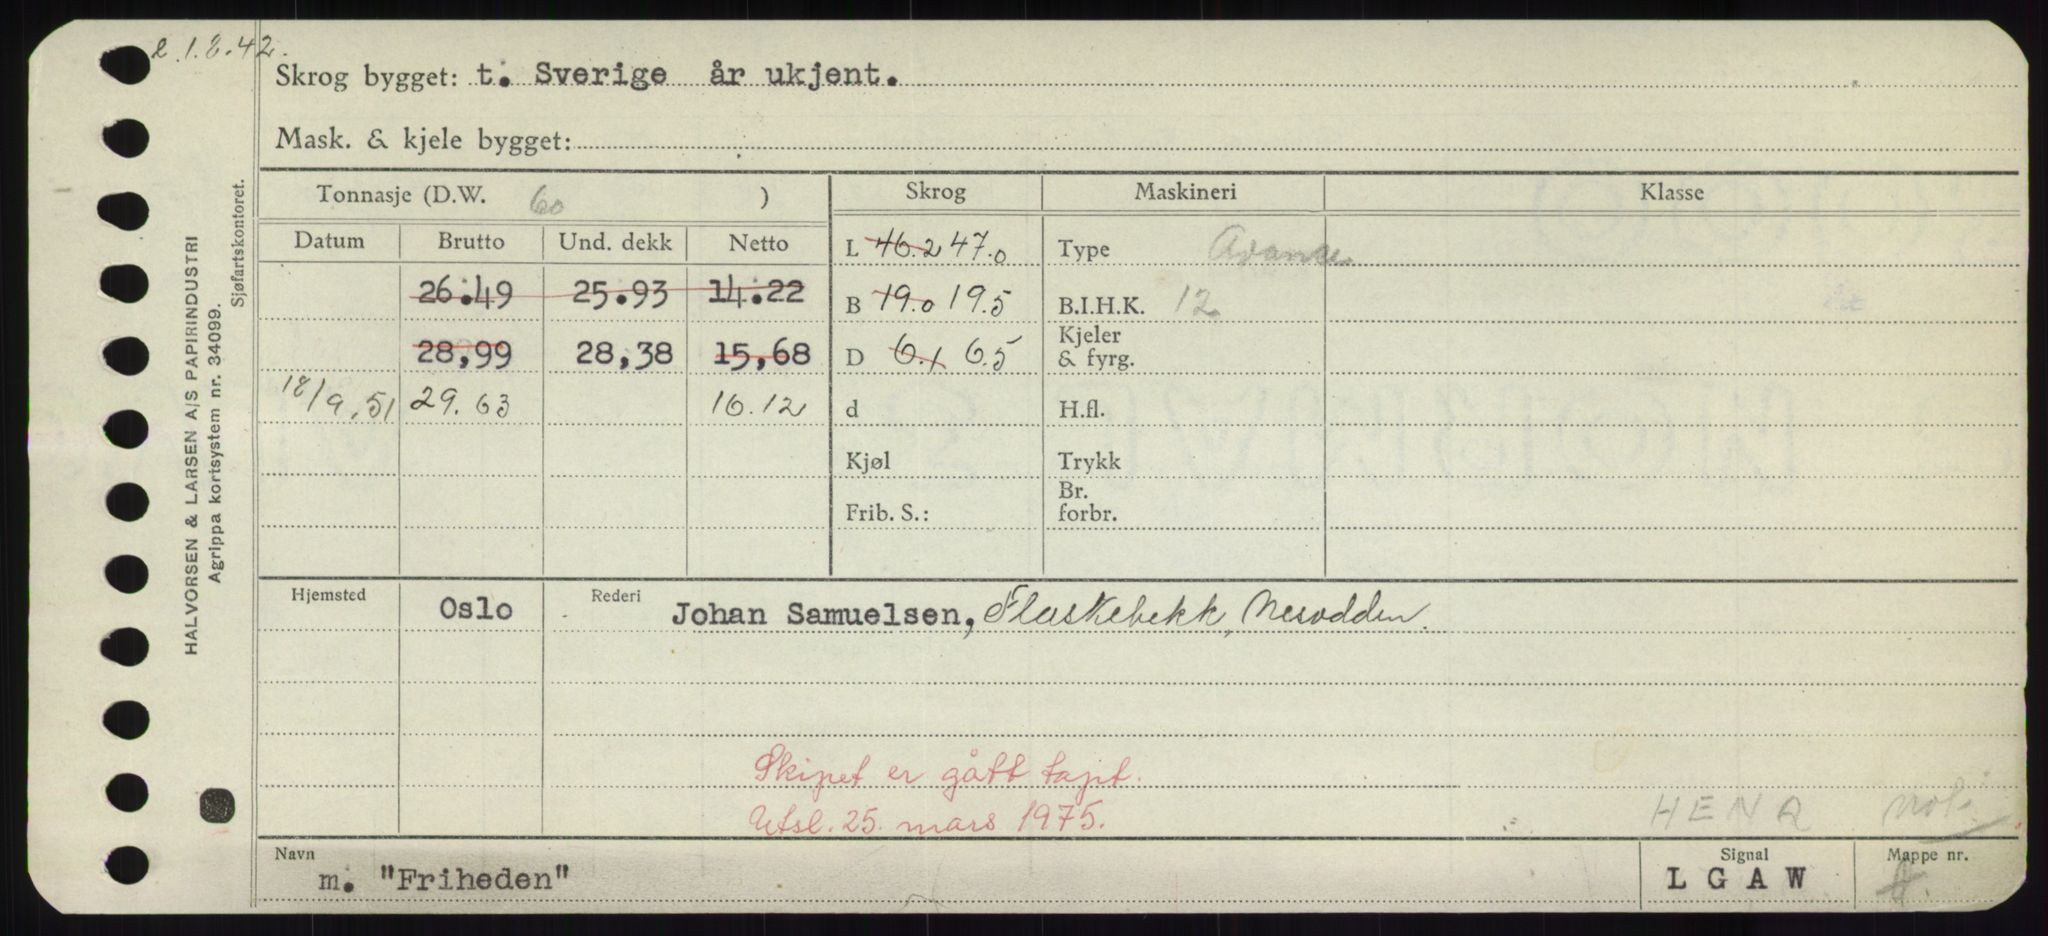 21.8.42.
Skrog bygget: t. Sverige år ukjent.
Mask. & kjele bygget:
Tonnasje (D.W. 60 )
Skrog
Maskineri
Klasse
Datum Brutto Und. dekk Netto
26.49 25.93 14.22
28,99 28,38 15,68
18/9.51 29.63 16.12
L 46.2 47.0
B 19.0 19.5
D 6.1 6.5
d
Kjøl
Frib. S.:
Type Avance
B.I.H.K. 12
Kjeler
& fyrg.
H.fl.
Trykk
Br.
forbr.
Hjemsted Oslo Rederi Johan Samuelsen, Flaskebekk, Nesodden.
Skipet er gått tapt.
Utsl. 25. mars 1975.
HENA
Navn m. "Friheden"
Signal L G A W
Mappe nr.
HALVORSEN & LARSEN A/S PAPIRINDUSTRI
Agrippa kortsystem nr. 34099.
Sjøfartskontoret.